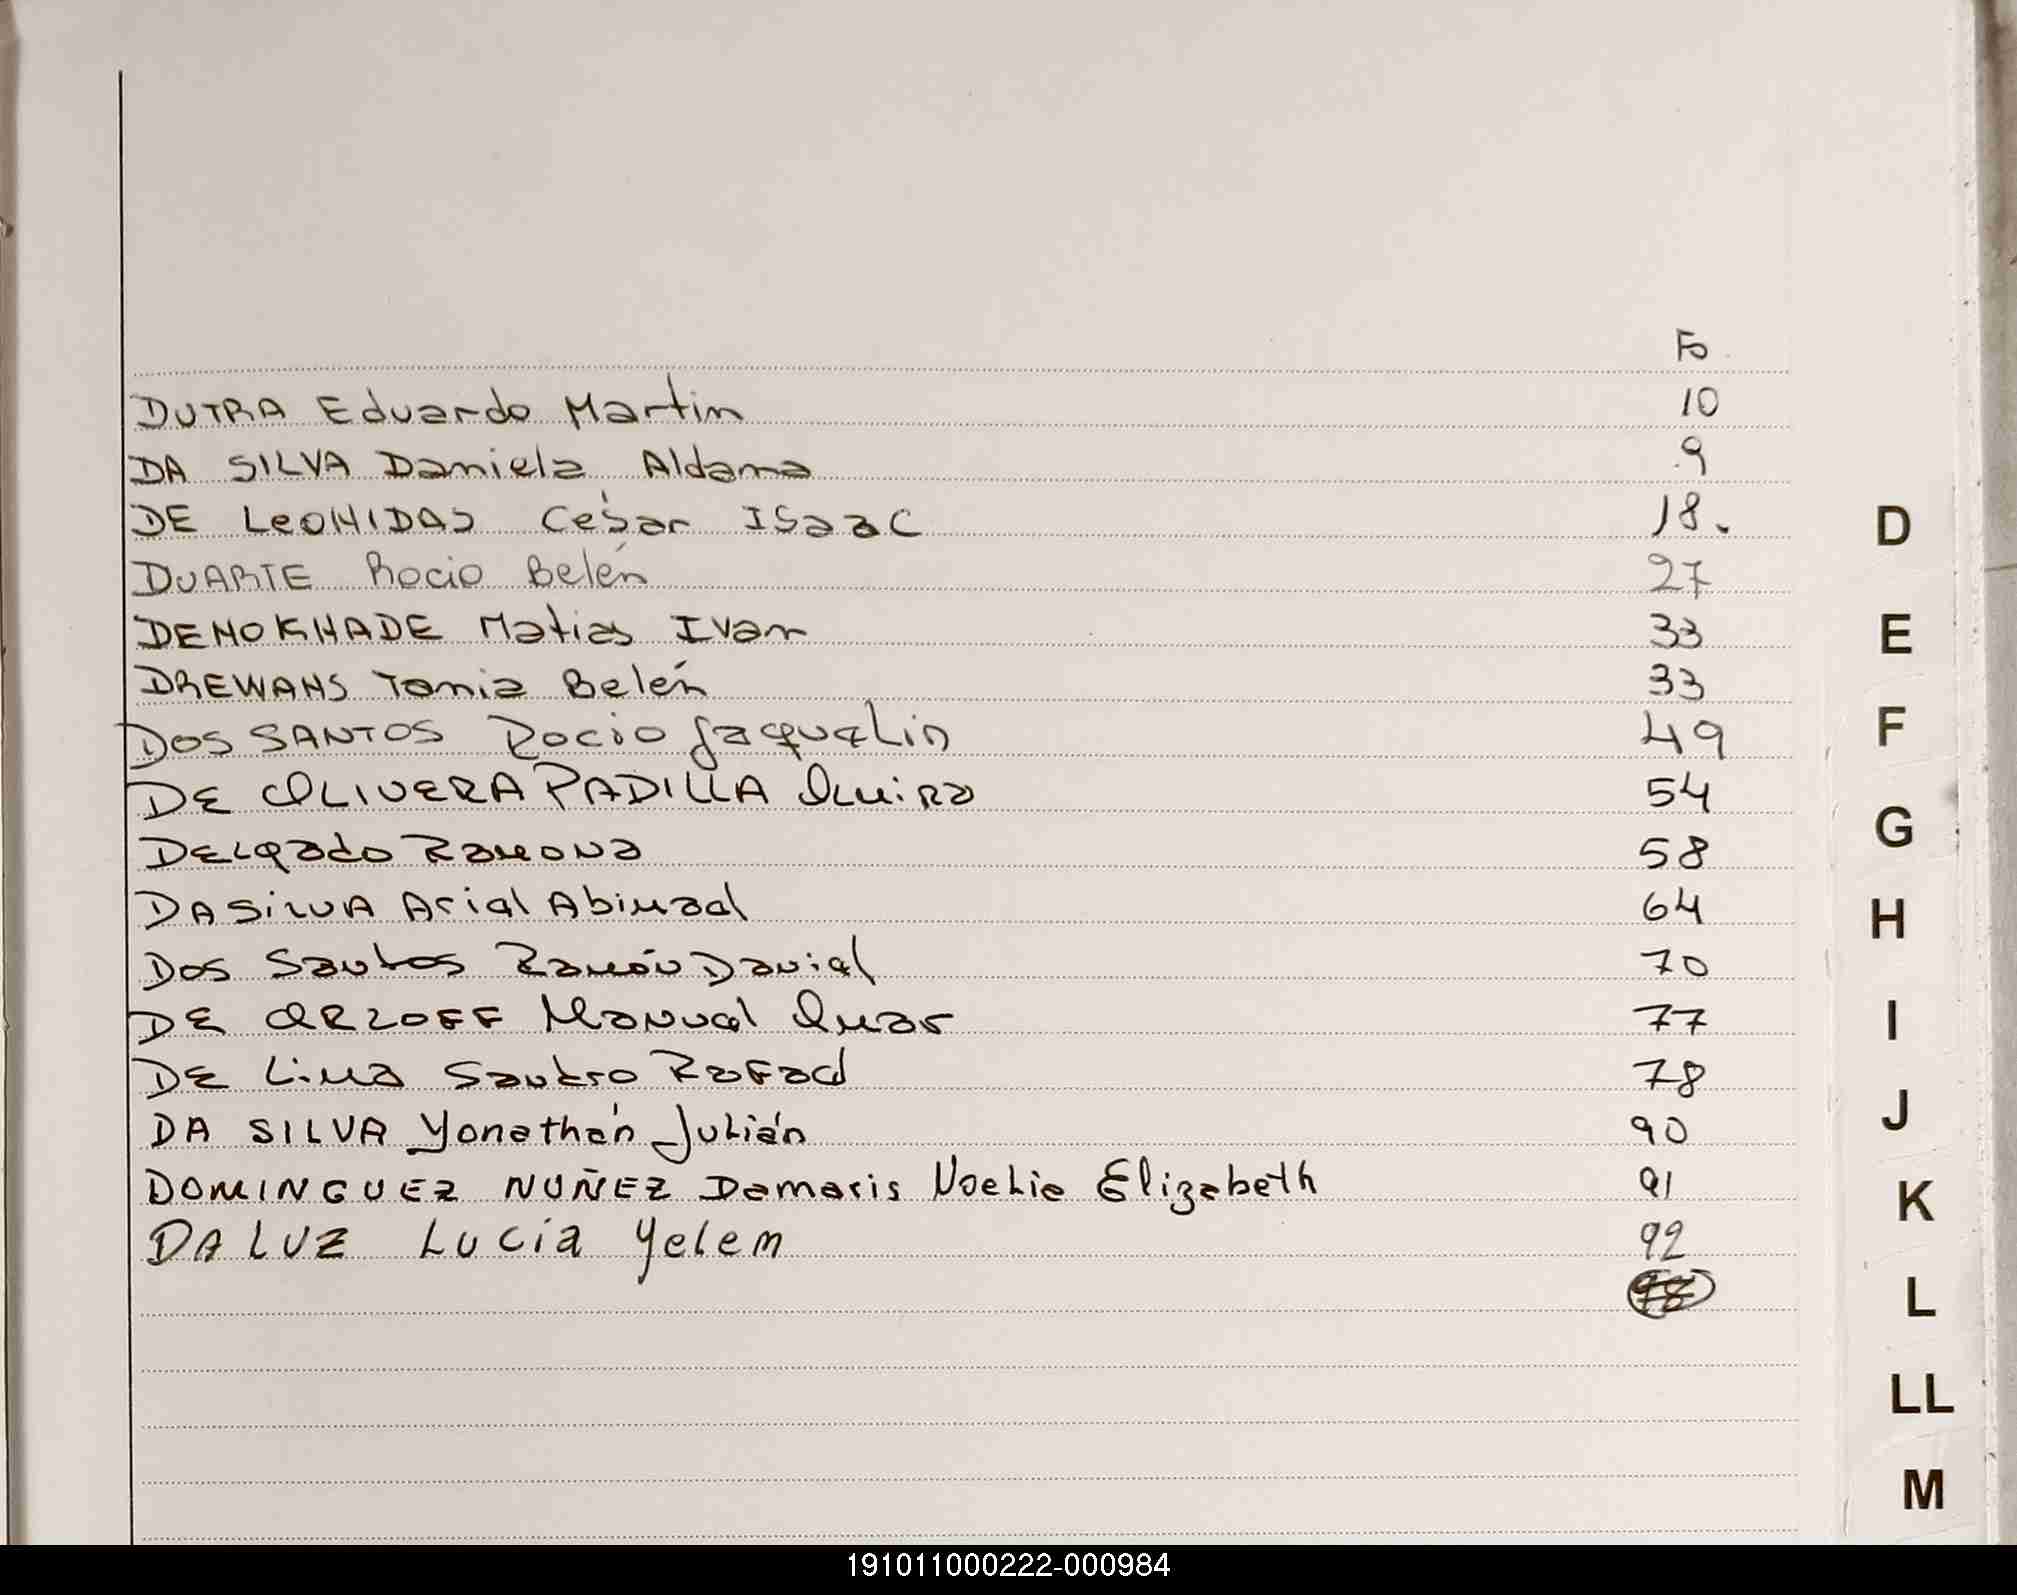 Fo
DUTRA Eduardo Martin 10
DA SILVA Daniela Aldana 9
DE LEONIDAS César ISaac 18.
DUARTE Rocio Belén 27
DENOKHADE Matias Ivan 33
DREWANS Tania Belén 33
DOS SANTOS Rocio Jaquelin 49
DE OLIVERA PADILLA 54
DELgado Ramona 58
DA SiLVA Ariel Abimael 64
Dos Santos Ramón Daniel 70
DE ORZOFF Manuel Omar 77
DE Lima Sandro Rafael 78
DA SILVA Yonathán Julián 90
DOMINGUEZ NUÑEZ Damaris Noelia Elizabeth 91
DA LUZ Lucía Yelem 92
D
E
F
G
H
I
J
K
L
LL
M
191011000222-000984